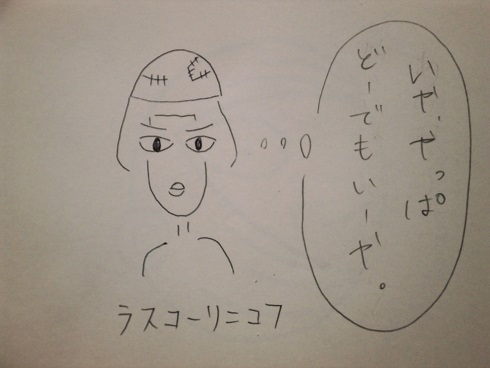 いや、やっぱ
どーでもいーや。
ラスコーリニコフ